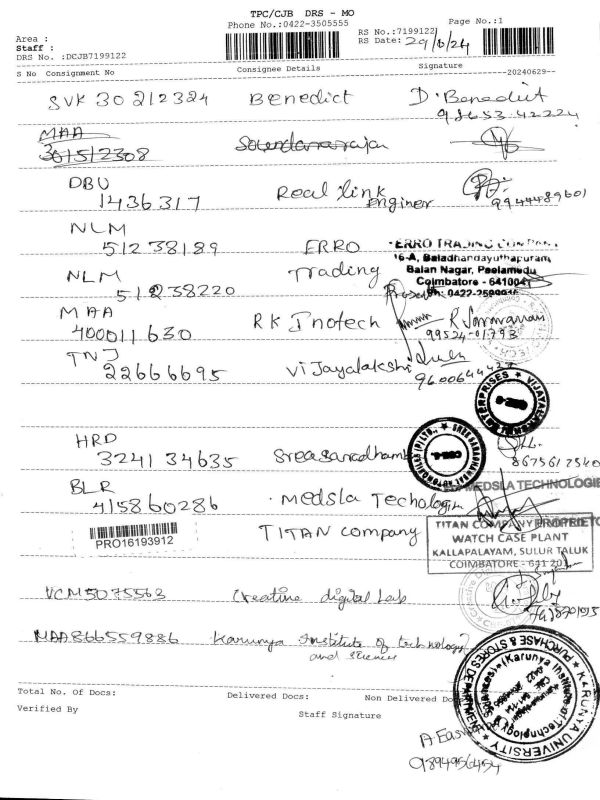 TPC/CJB DRS - MO
Phone No.:0422-3505555
Page No.:1
Area :
RS No.:7199122
Staff :
RS Date: 29/6/24
DRS No. :DCJB7199122
S No Consignment No Consignee Details Signature
--20240629--
SVK 30 212324 Benedict D. Benedict
98653 42224
MAA
301512308 Soundararajan
DBU
1436317 Real link Enginer
9944489601
NLM
51238189 ERRO
ERRO TRADING COMPANY
16-A, Baladhandayuthapuram,
Balan Nagar, Peelamedu
Coimbatore - 641004
NLM
51238220 Trading
Ph: 0422-2599916
MAA
400011630 RK Inotech R Saravanan
99524-01793
TNJ
22666695 Vijayalakshi
9600644427
ENTERPRISES ★ VIJAYALAKSHMI
HRD
324134635 Sreasaradhamb
8675612540
BLR
415860286 Medsla Techologin
MEDSLA TECHNOLOGIE
PROPRIETO
PRO16193912
TITAN company
TITAN COMPANY
WATCH CASE PLANT
KALLAPALAYAM, SULUR TALUK
COIMBATORE - 641 201
VCM5075563 Creative digital Lab
MAA866559886 Karunya Institute of technology
and science
KARUNYA UNIVERSITY
PURCHASE & STORES DEPARTMENT
(Karunya Institute of Technology &
Sciences)
Total No. Of Docs: Delivered Docs: Non Delivered Do
Verified By
Staff Signature
A. Easw
9894956454